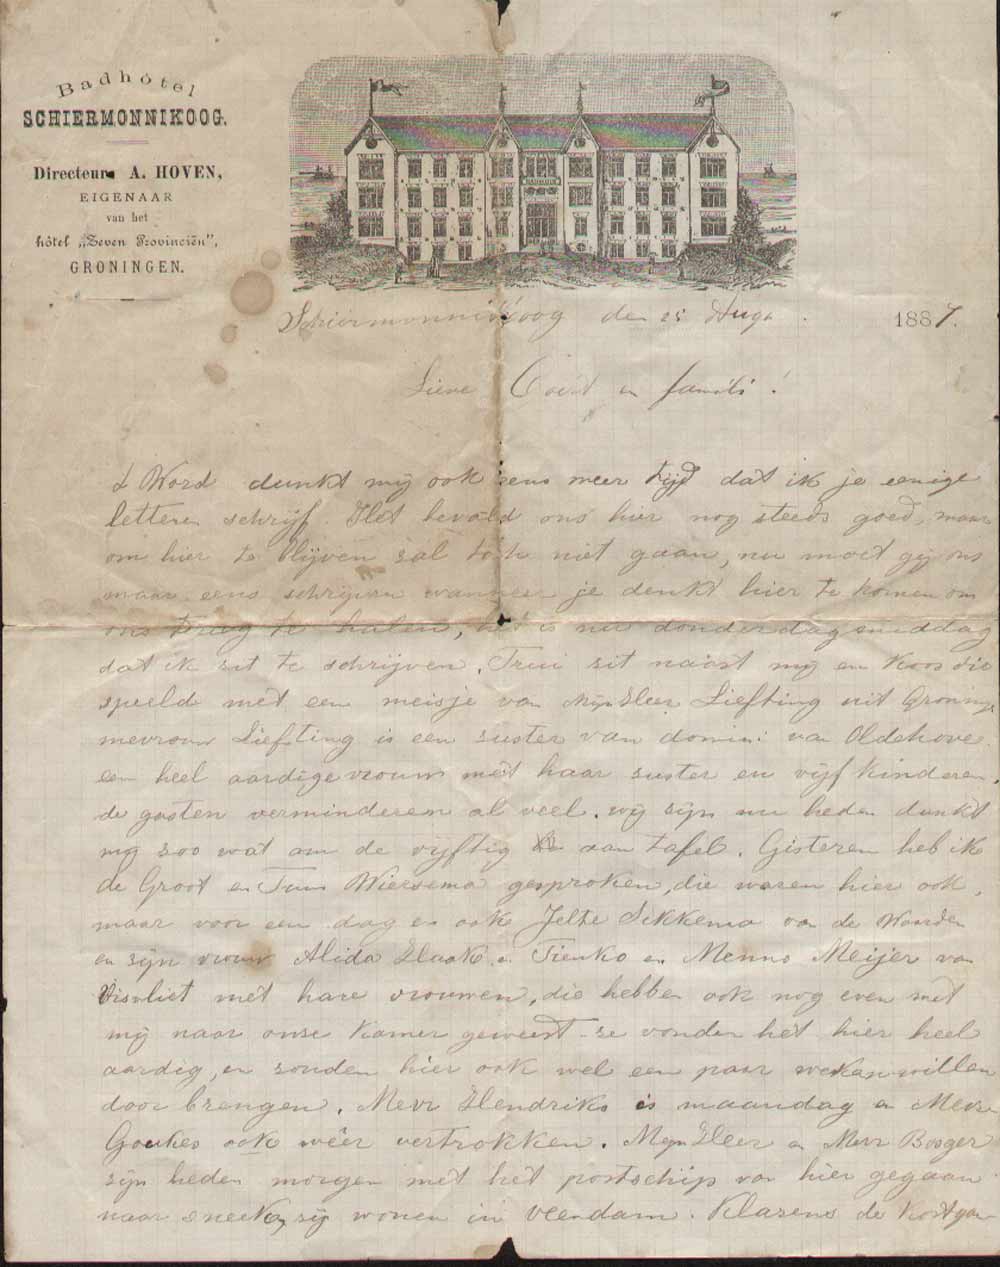 Badhôtel
SCHIERMONNIKOOG.
Directeur A. HOVEN,
EIGENAAR
van het
hôtel „Zeven Provinciën",
GRONINGEN.
Schiermonnikoog den 25 Aug. 1887.
Lieve en famili!
t Word dunkt mij ook eens meer tijd dat ik je eenige
letteren schrijf. Het bevald ons hier nog steeds goed, maar
om hier te blijven sal toch niet gaan, nu moet gij ons
maar eens schrijven wanneer je denkt hier te komen om
ons terug te halen, het is nu donderdagsmiddag
dat ik sit te schrijven, Trui sit naast mij en Koos die
speeld met een meisje van Mijn Heer Liefting uit Groning
mevrouw Liefting is een suster van domini van Oldehove
een heel aardige vrouw met haar suster en vijf kinderen.
de gasten verminderen al veel. wij sijn nu heden dunkt
mij soo wat om de vijftig aan tafel. Gisteren heb ik
de Groot en Wiersema gesproken, die waren hier ook,
maar voor een dag en ook Jelte Sikkema van de Waarden
en sijn vrouw Alida Haak en Tienko en Menno Meijer van
Visvliet met hare vrouwen, die hebben ook nog even met
mij naar onse Kamer geweest. se vonden het hier heel
aardig, en souden hier ook wel een paar weken willen
door brengen. Mevr Hendriks is maandag en Mevr
Goukes ook wêer vertrokken. Mijn Heer en Mevr Bosger
sijn heden morgen met het postschip van hier gegaan
naar sneek, sij wonen in Veendam. Klasens de